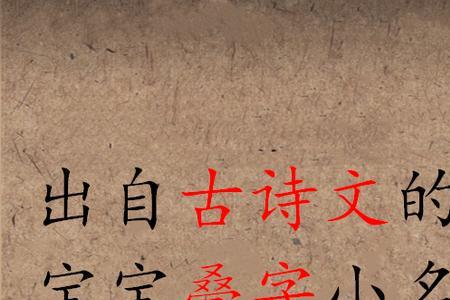 出自古诗文的
宝宝叠字小名